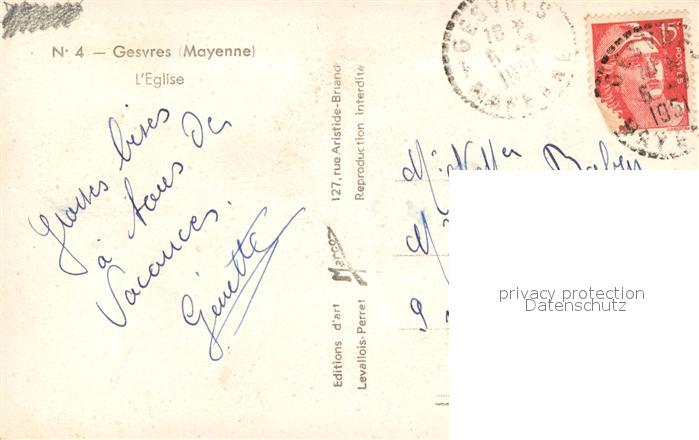 N· 4 — Gesvres (Mayenne)
L'Eglise
Grosses bises
à tous des
Vacances.
Ginette
Editions d'art Marco 127, rue Aristide-Briand
Levallois-Perret Reproduction interdite
GESVRES
18
6
1951
MAYENNE
15F
POSTES
1951
privacy protection
Datenschutz